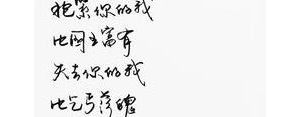 抱紧你的我
比国王富有
失去你的我
比乞丐落魄